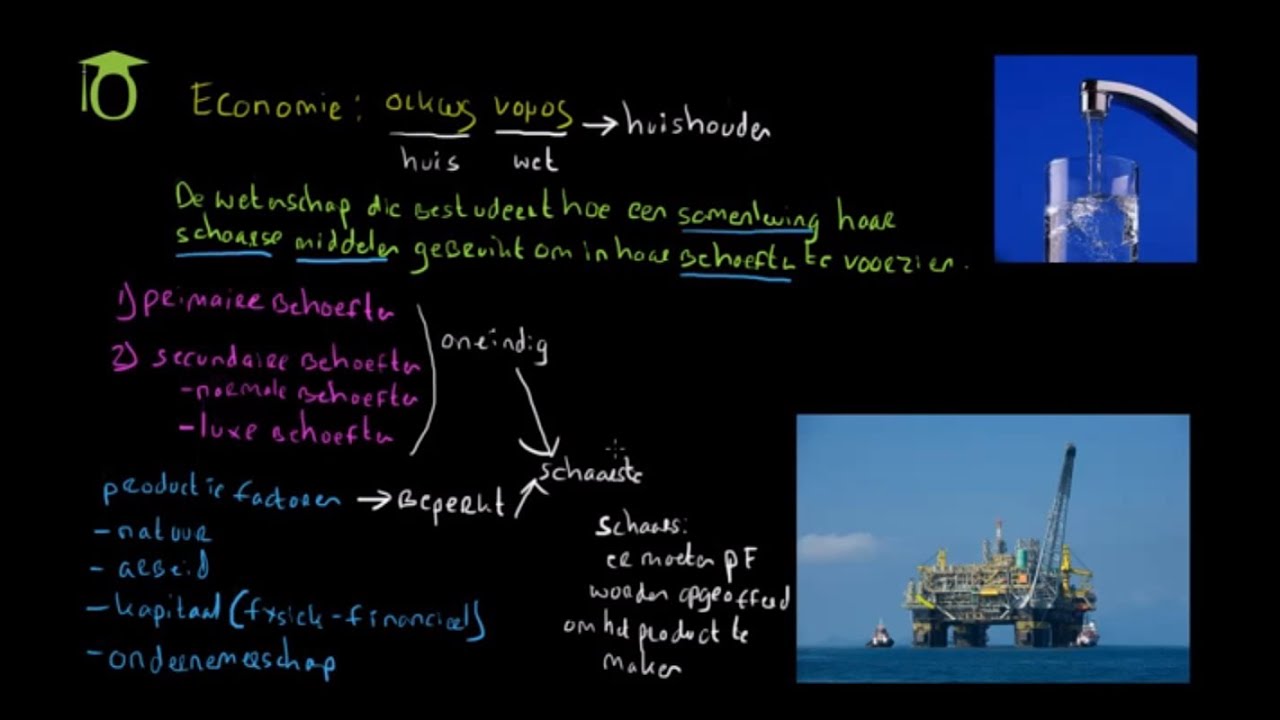 Economie: οικως νομος → huishouden
huis wet
De wetenschap die bestudeert hoe een samenleving haar
schaarse middelen gebruikt om in haar behoeften te voorzien.
1) primaire behoeften
oneindig
2) secundaire behoeften
- normale behoeften
- luxe behoeften
schaarste
productie factoren → Beperkt
- natuur
- arbeid
- kapitaal (fysiek - financieel)
- ondernemerschap
schaars:
er moeten pF
worden opgeofferd
om het product te
maken